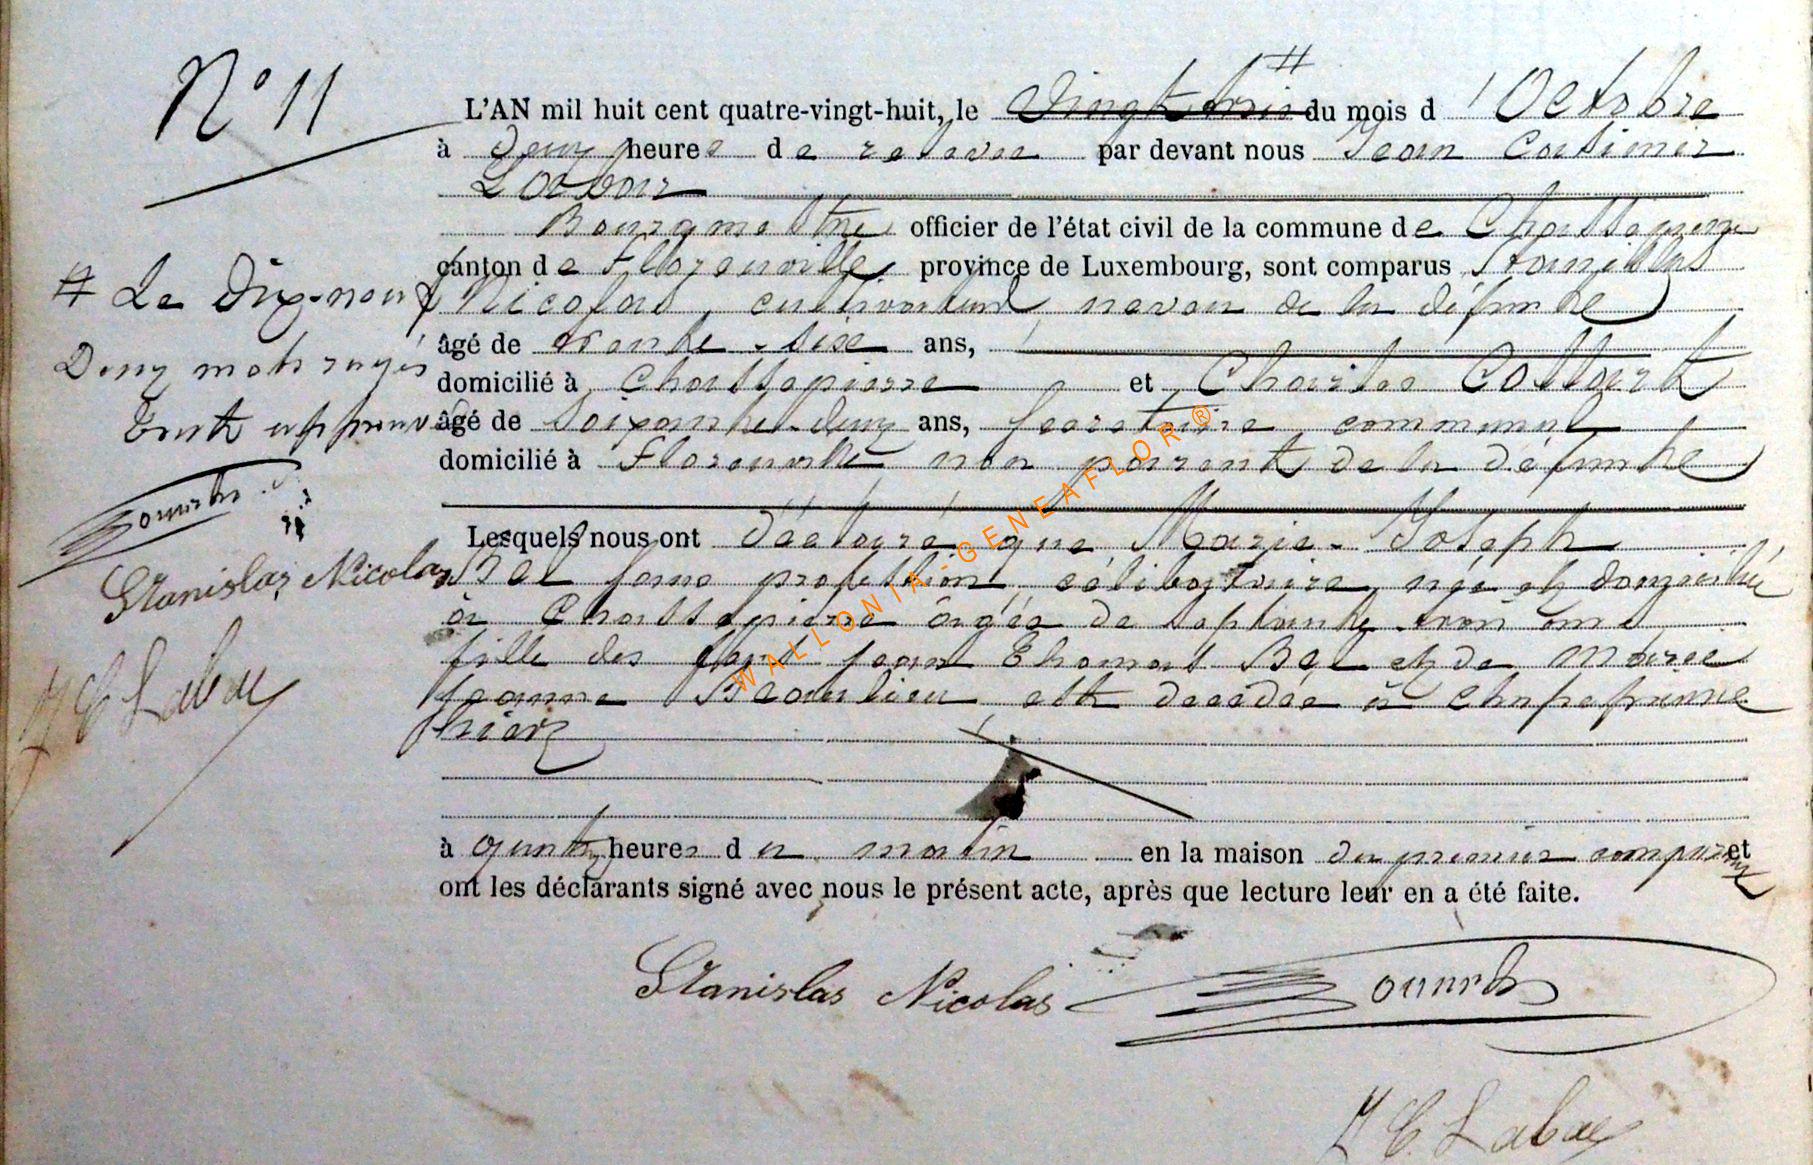 N° 11
L'AN mil huit cent quatre-vingt-huit, le vingt trois # du mois d'Octobre
à deux heures de relevée par devant nous Jean Casimir
Bourgmestre officier de l'état civil de la commune de Chassepierre
canton de Florenville province de Luxembourg, sont comparus Stanislas
# Le dix-neuf
Nicolas, cultivateur, neveu de la défunte
âgé de trente-six ans,
Deux mots rayés
domicilié à Chassepierre et Charles
Texte approuvé
âgé de soixante-deux ans, secrétaire communal
domicilié à Florenville non parent de la défunte
Lesquels nous ont déclaré que Marie-Joseph
Stanislas Nicolas
Bel sans profession, célibataire, née et domiciliée
à Chassepierre âgée de septante-trois ans
fille des feus Jean Thomas Bel et de Marie
Jeanne Beaulieu est décédée à Chassepierre
hier
à quatre heures du matin en la maison du premier comparant et
ont les déclarants signé avec nous le présent acte, après que lecture leur en a été faite.
Stanislas Nicolas
WALLONIA-GENEAFLOR®